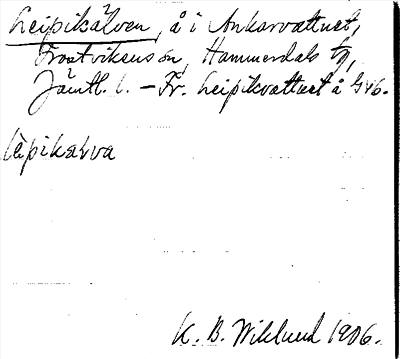 Leipikälven, å i Ankarvattnet,
Frostvikens sn, Hammerdals tg,
Jämtl. l. – Fr. Leipikvattnet å
lèpikalva
K. B. Wiklund 1906.